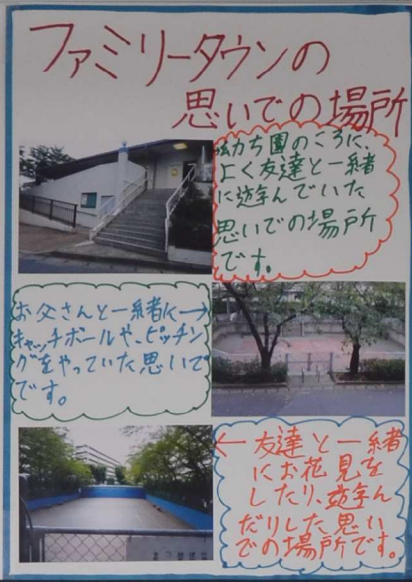 ファミリータウンの
思いでの場所
幼ち園のころに、
よく友達と一緒
に遊んでいた
思いでの場所
です。
お父さんと一緒に→
キャッチボールや、ピッチン
グをやっていた思いで
です。
←友達と一緒
にお花見を
したり、遊ん
だりした思い
での場所です。